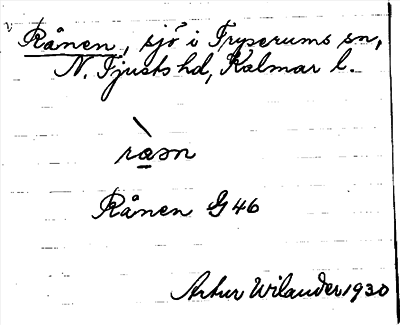 Rånen, sjö i Tryserums sn,
N. Tjusts hd, Kalmar l.
Rånen G 46
Artur Wilander 1930